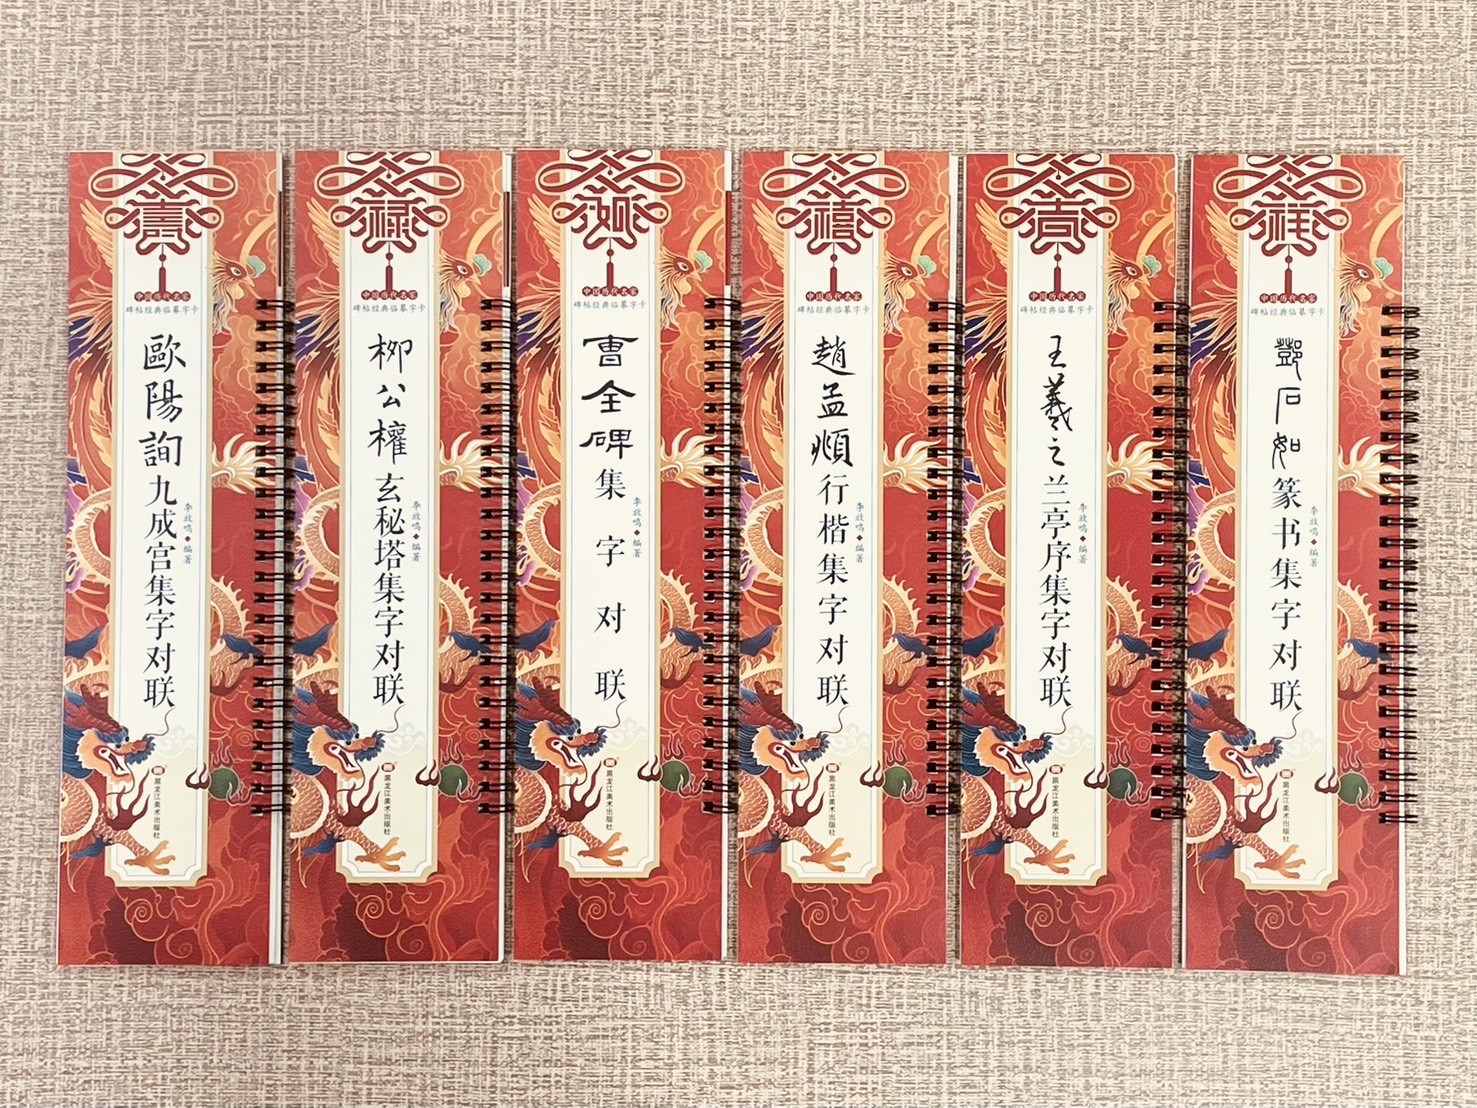 壽
中国历代名家
碑帖经典临摹字卡
歐陽詢九成宫集字对联
李放鸣◆编著
黑龙江美术出版社
禄
中国历代名家
碑帖经典临摹字卡
柳公權玄秘塔集字对联
李放鸣◆编著
黑龙江美术出版社
如
中国历代名家
碑帖经典临摹字卡
曹全碑集字对联
李放鸣◆编著
黑龙江美术出版社
禧
中国历代名家
碑帖经典临摹字卡
趙孟頫行楷集字对联
李放鸣◆编著
黑龙江美术出版社
吉
中国历代名家
碑帖经典临摹字卡
王羲之兰亭序集字对联
李放鸣◆编著
黑龙江美术出版社
祥
中国历代名家
碑帖经典临摹字卡
鄧石如篆书集字对联
李放鸣◆编著
黑龙江美术出版社